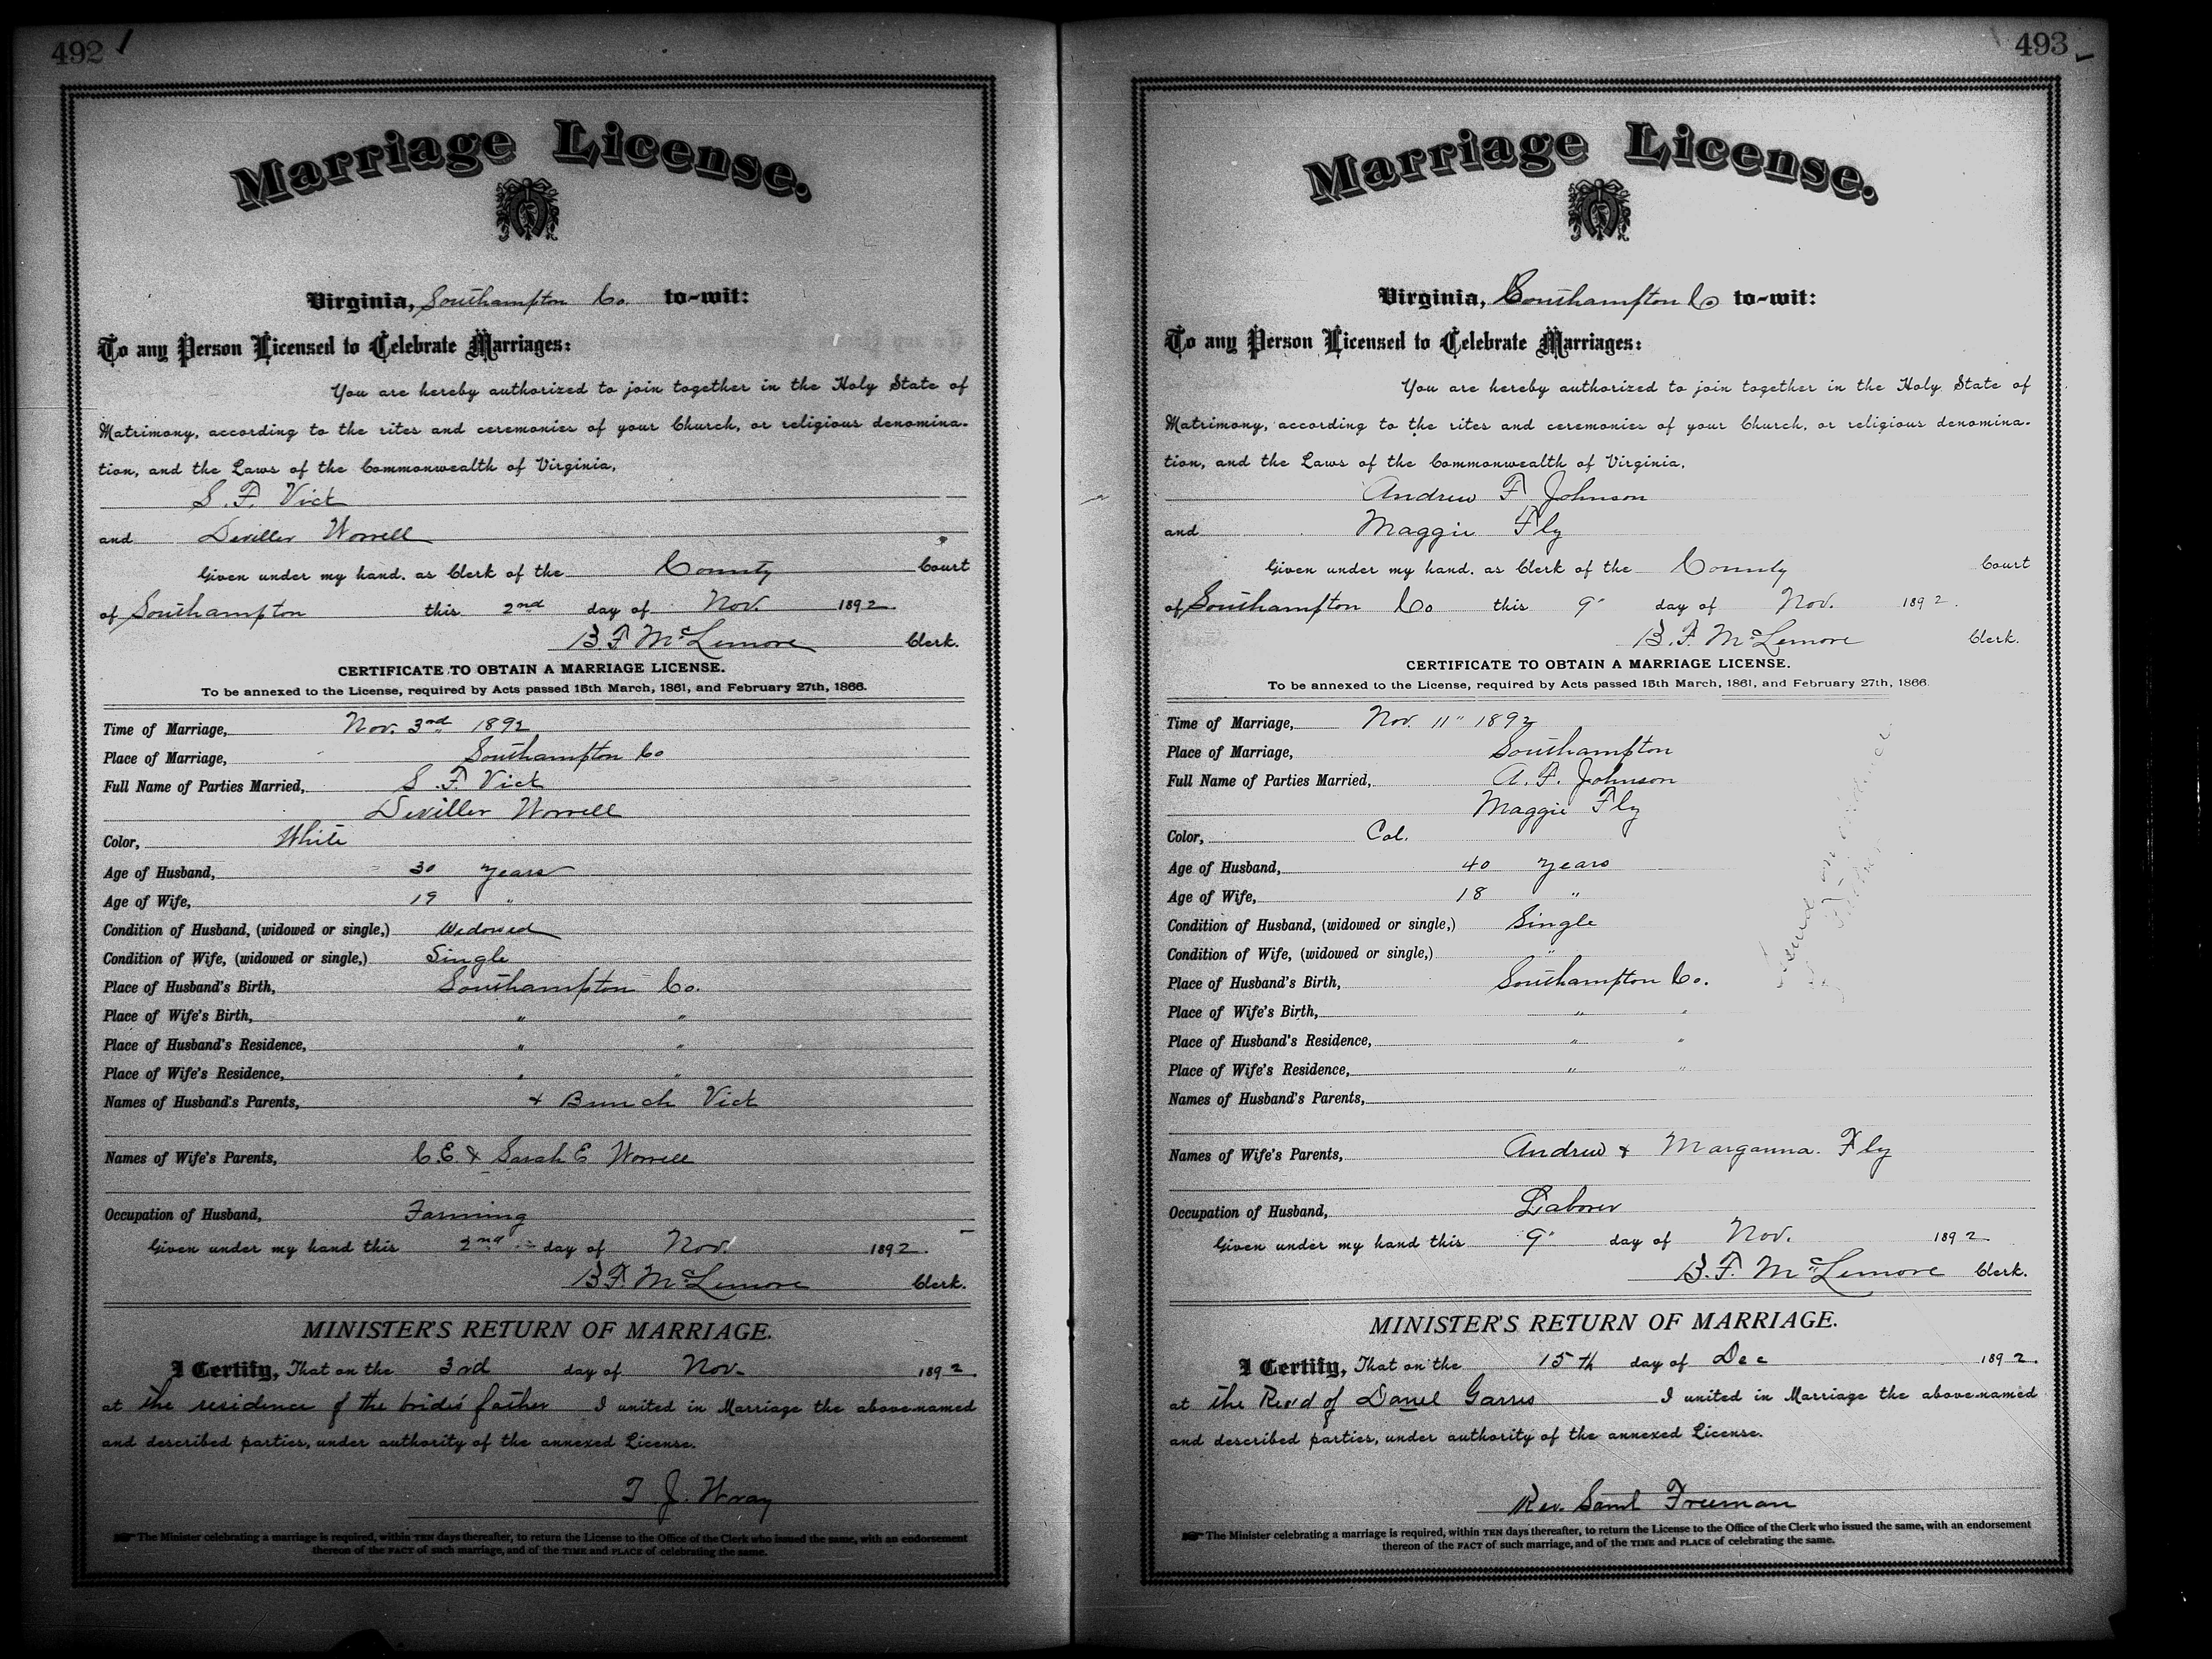 492
Marriage License.
Virginia, Southampton Co. to-wit:
To any Person Licensed to Celebrate Marriages:
You are hereby authorized to join together in the Holy State of
Matrimony, according to the rites and ceremonies of your Church, or religious denomina-
tion, and the Laws of the Commonwealth of Virginia,
S. F. Vick
and Deviller Worrell
Given under my hand, as Clerk of the County Court
of Southampton this 2nd day of Nov. 1892.
B F McLemore Clerk.
CERTIFICATE TO OBTAIN A MARRIAGE LICENSE.
To be annexed to the License, required by Acts passed 15th March, 1861, and February 27th, 1866.
Time of Marriage, Nov. 3rd 1892
Place of Marriage, Southampton Co
Full Name of Parties Married, S. F. Vick
Deviller Worrell
Color, White
Age of Husband, 30 years
Age of Wife, 19 "
Condition of Husband, (widowed or single,) Widowed
Condition of Wife, (widowed or single,) Single
Place of Husband's Birth, Southampton Co.
Place of Wife's Birth, " "
Place of Husband's Residence, " "
Place of Wife's Residence, " "
Names of Husband's Parents, + Bunch Vick
Names of Wife's Parents, C E & Sarah E Worrell
Occupation of Husband, Farming
Given under my hand this 2nd day of Nov. 1892.
B F. McLemore Clerk.
MINISTER'S RETURN OF MARRIAGE.
I Certify, That on the 3rd day of Nov. 1892.
at the residence of the bride's father I united in Marriage the above-named
and described parties, under authority of the annexed License.
T. J. Wray
The Minister celebrating a marriage is required, within TEN days thereafter, to return the License to the Office of the Clerk who issued the same, with an endorsement
thereon of the FACT of such marriage, and of the TIME and PLACE of celebrating the same.
493
Marriage License.
Virginia, Southampton Co to-wit:
To any Person Licensed to Celebrate Marriages:
You are hereby authorized to join together in the Holy State of
Matrimony, according to the rites and ceremonies of your Church, or religious denomina-
tion, and the Laws of the Commonwealth of Virginia,
Andrew F Johnson
and Maggie Fly
Given under my hand, as Clerk of the County Court
of Southampton Co this 9" day of Nov. 1892.
B. F. McLemore Clerk.
CERTIFICATE TO OBTAIN A MARRIAGE LICENSE.
To be annexed to the License, required by Acts passed 15th March, 1861, and February 27th, 1866.
Time of Marriage, Nov. 11" 1892
Place of Marriage, Southampton
Full Name of Parties Married, A. F. Johnson
Maggie Fly
Color, Col.
Age of Husband, 40 years
Age of Wife, 18 "
Condition of Husband, (widowed or single,) Single
Condition of Wife, (widowed or single,) "
Place of Husband's Birth, Southampton Co.
Place of Wife's Birth, " "
Place of Husband's Residence, " "
Place of Wife's Residence, " "
Names of Husband's Parents,
Names of Wife's Parents, Andrew + Marganna Fly
Occupation of Husband, Laborer
Given under my hand this 9" day of Nov. 1892
B. F. McLemore Clerk.
MINISTER'S RETURN OF MARRIAGE.
I Certify, That on the 15th day of Dec 1892.
at the Resd of Danel Garris I united in Marriage the above-named
and described parties, under authority of the annexed License.
Rev. Saml Freeman
The Minister celebrating a marriage is required, within TEN days thereafter, to return the License to the Office of the Clerk who issued the same, with an endorsement
thereon of the FACT of such marriage, and of the TIME and PLACE of celebrating the same.